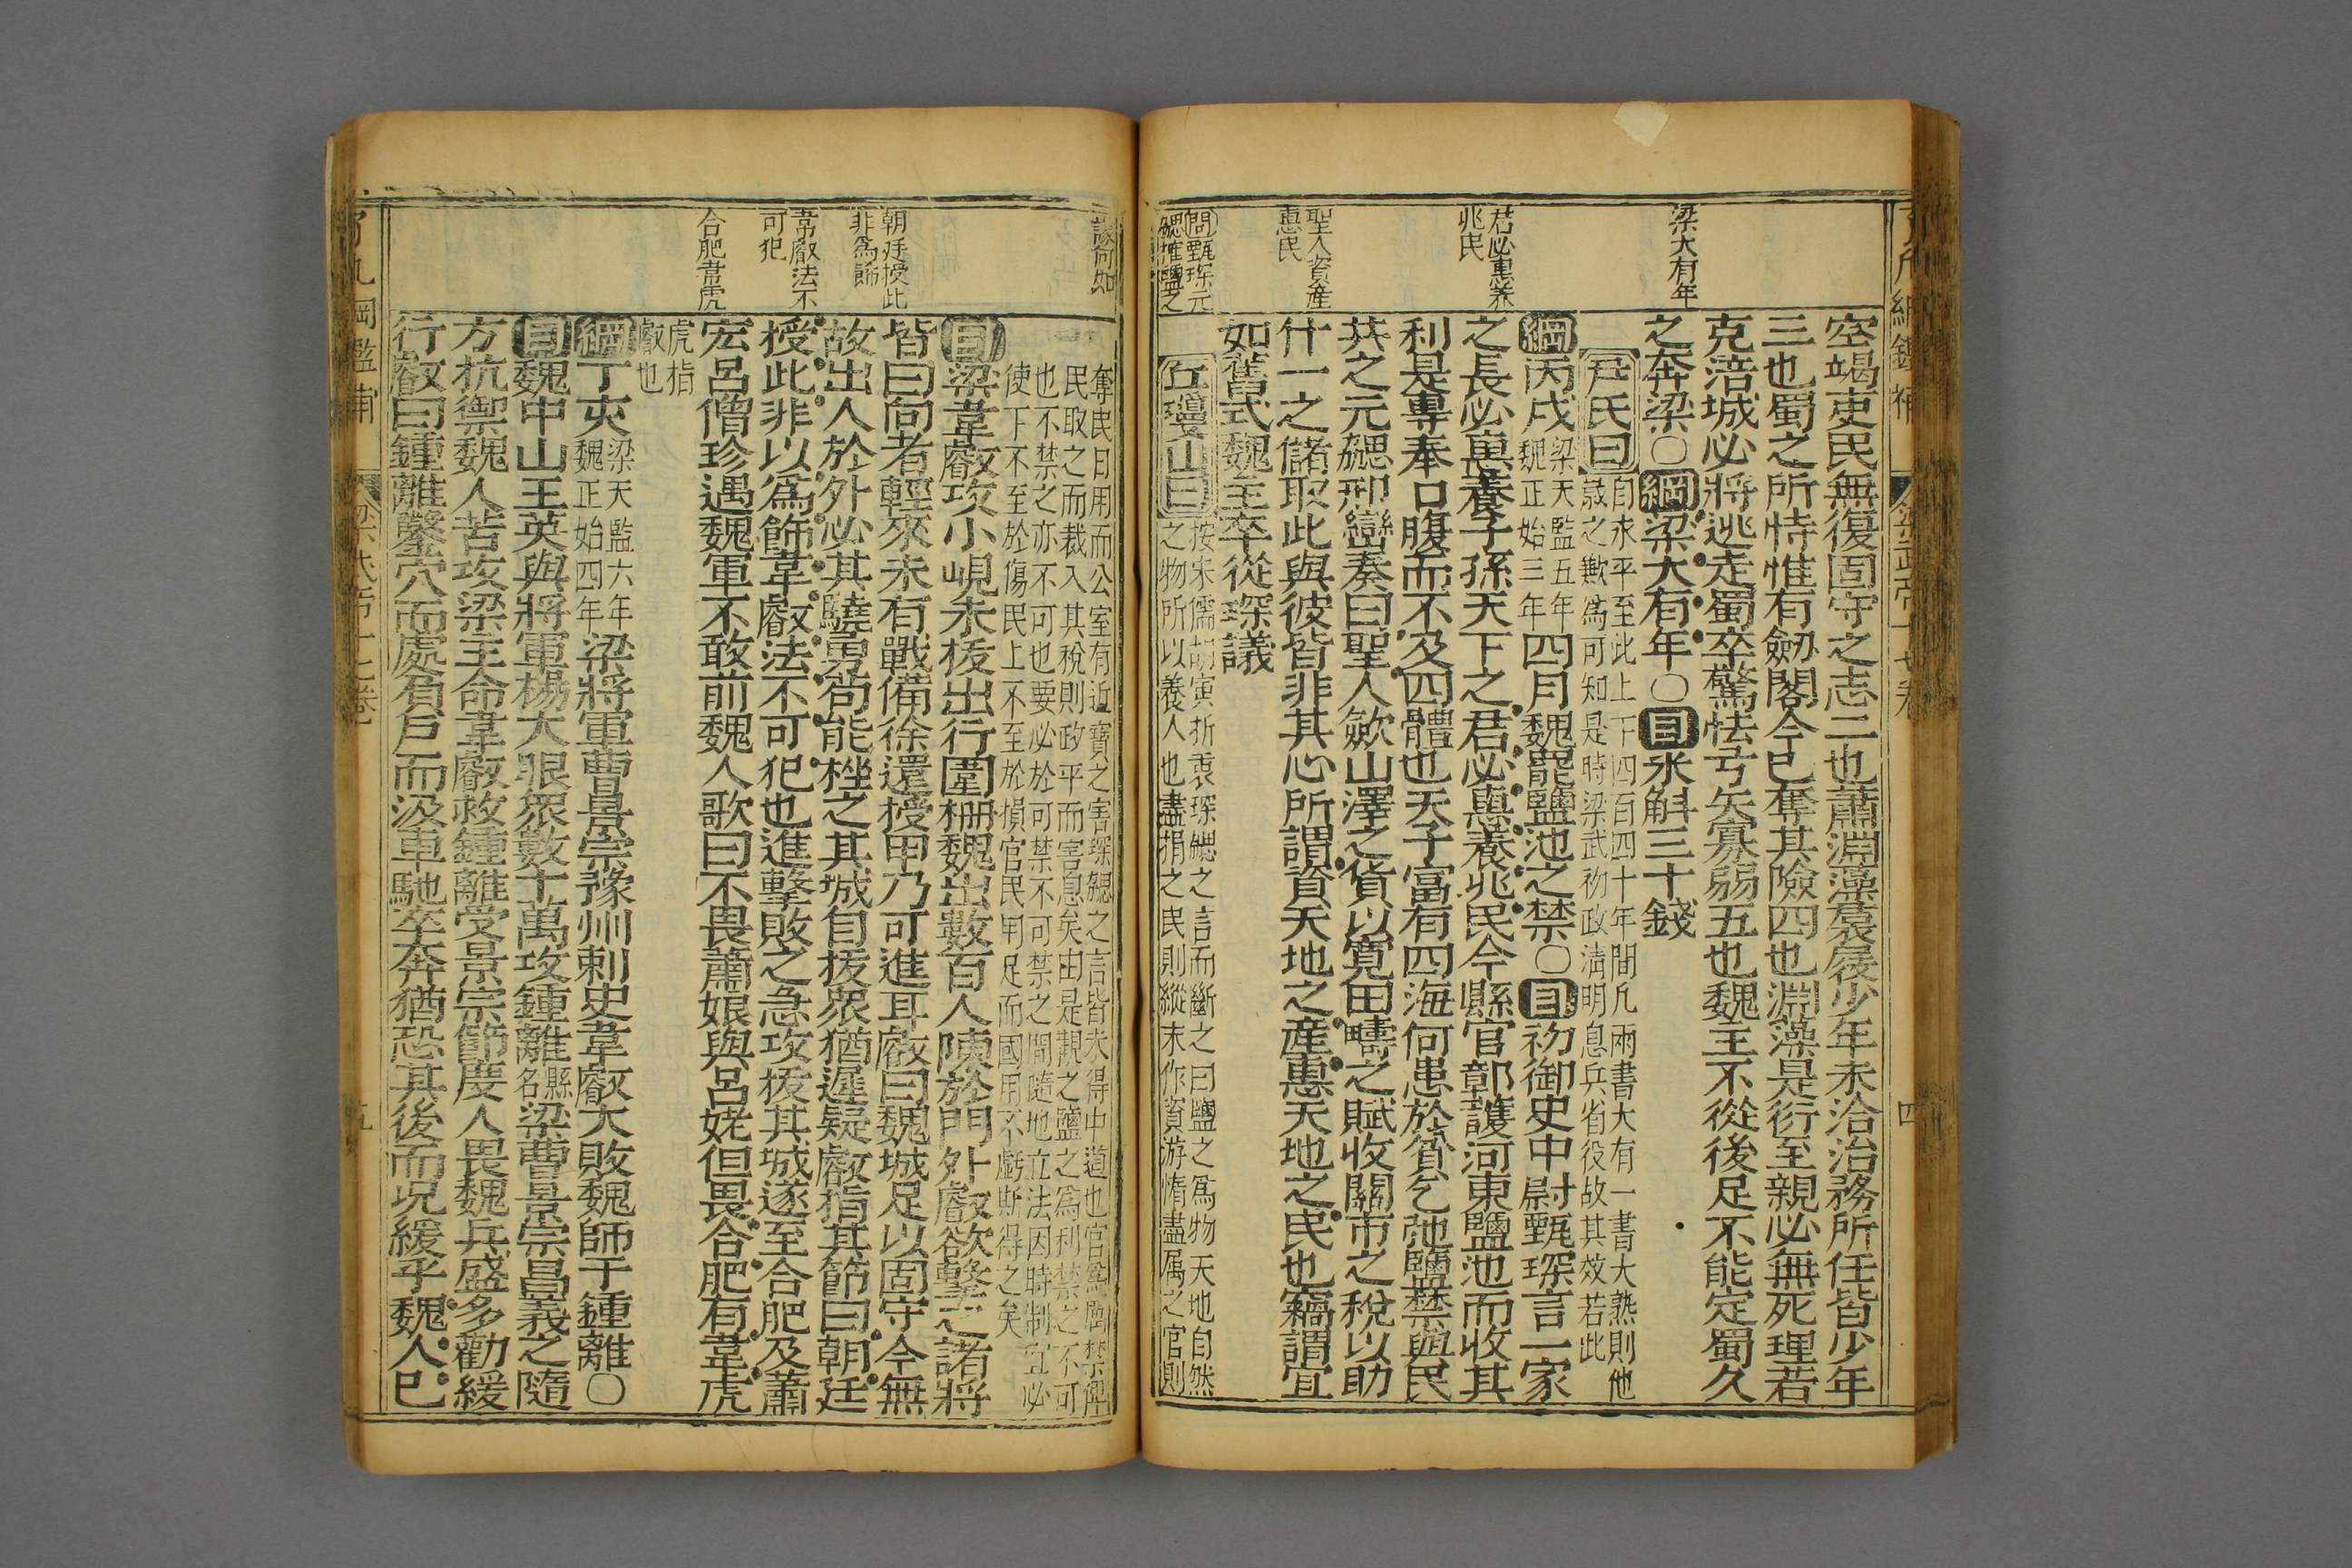 梁大有年
君必惠養
兆民
聖人資產
惠民
問甄琛元
勰推鹽之
空竭吏民無復固守之志二也蕭淵藻裠屐少年未洽治務所任皆少年
三也蜀之所恃惟有劒閣今已奪其險四也淵藻是衍至親必無死理若
克涪城必將逃走蜀卒驚怯弓矢寡弱五也魏主不從後足不能定蜀久
之奔梁○綱梁大有年○目米斛三十錢
尹氏曰自永平至此上下四百四十年間凡兩書大有一書大熟則他
歲之歉爲可知是時梁武初政淸明息兵省役故其效若此
綱丙戌梁天監五年
魏正始三年四月魏罷鹽池之禁○目初御史中尉甄琛言一家
之長必惠養子孫天下之君必惠養兆民今縣官鄣護河東鹽池而收其
利是專奉口腹而不及四體也天子富有四海何患於貧乞弛鹽禁與民
共之元勰邢巒奏曰聖人斂山澤之貨以寬田疇之賦收關市之稅以助
什一之儲取此與彼皆非其心所謂資天地之產惠天地之民也竊謂宜
如舊式魏主卒從琛議
丘瓊山曰按宋儒胡寅折衷琛勰之言而斷之曰鹽之爲物天地自然
之物所以養人也盡捐之民則縱末作資游惰盡属之官則
議何如
朝廷授此
非爲飾
韋叡法不
可犯
合肥韋虎
奪民日用而公室有近寶之害琛勰之言皆未得中道也官爲厲禁俾
民取之而裁入其稅則政平而害息矣由是觀之鹽之爲利禁之不可
也不禁之亦不可也要必於可禁不可禁之間隨地立法因時制宜必
使下不至於傷民上不至於損官民用足而國用不虧斯得之矣
目梁韋叡攻小峴未拔出行圍柵魏出數百人陳於門外叡欲擊之諸將
皆曰向者輕來未有戰備徐還授甲乃可進耳叡曰魏城足以固守今無
故出人於外必其驍勇苟能挫之其城自拔衆猶遲疑叡指其節曰朝廷
授此非以爲飾韋叡法不可犯也進擊敗之急攻拔其城遂至合肥及蕭
宏呂僧珍遇魏軍不敢前魏人歌曰不畏蕭娘與呂姥但畏合肥有韋虎
虎指
叡也
綱丁亥梁天監六年
魏正始四年梁將軍曹景宗豫州刺史韋叡大敗魏師于鍾離○
目魏中山王英與將軍楊大眼衆數十萬攻鍾離縣
名梁曹景宗昌義之隨
方抗禦魏人苦攻梁主命韋叡救鍾離受景宗節度人畏魏兵盛多勸緩
行叡曰鍾離鑿穴而處負戶而汲車馳卒奔猶恐其後而况緩乎魏人已